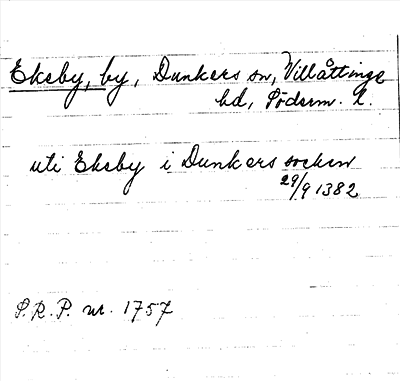 Ekeby, by, Dunkers sn, Villåttinge
hd, Söderm. l.
uti Ekeby i Dunkers socken
29/9 1382
S.R.P. nr. 1757